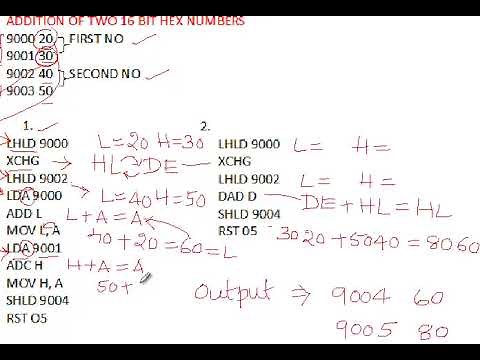 ADDITION OF TWO 16 BIT HEX NUMBERS
9000 20
9001 30
FIRST NO
9002 40
9003 50
SECOND NO
1.
LHLD 9000 L=20 H=30
XCHG HL DE
LHLD 9002
LDA 9000 L=40 H=50
ADD L L+A=A
MOV L, A 40+20=60=L
LDA 9001
ADC H H+A=A
MOV H, A 50+
SHLD 9004
RST O5
2.
LHLD 9000 L= H=
XCHG
LHLD 9002 L= H=
DAD D DE+HL=HL
SHLD 9004
RST 05 3020+5040=8060
Output ⇒ 9004 60
9005 80